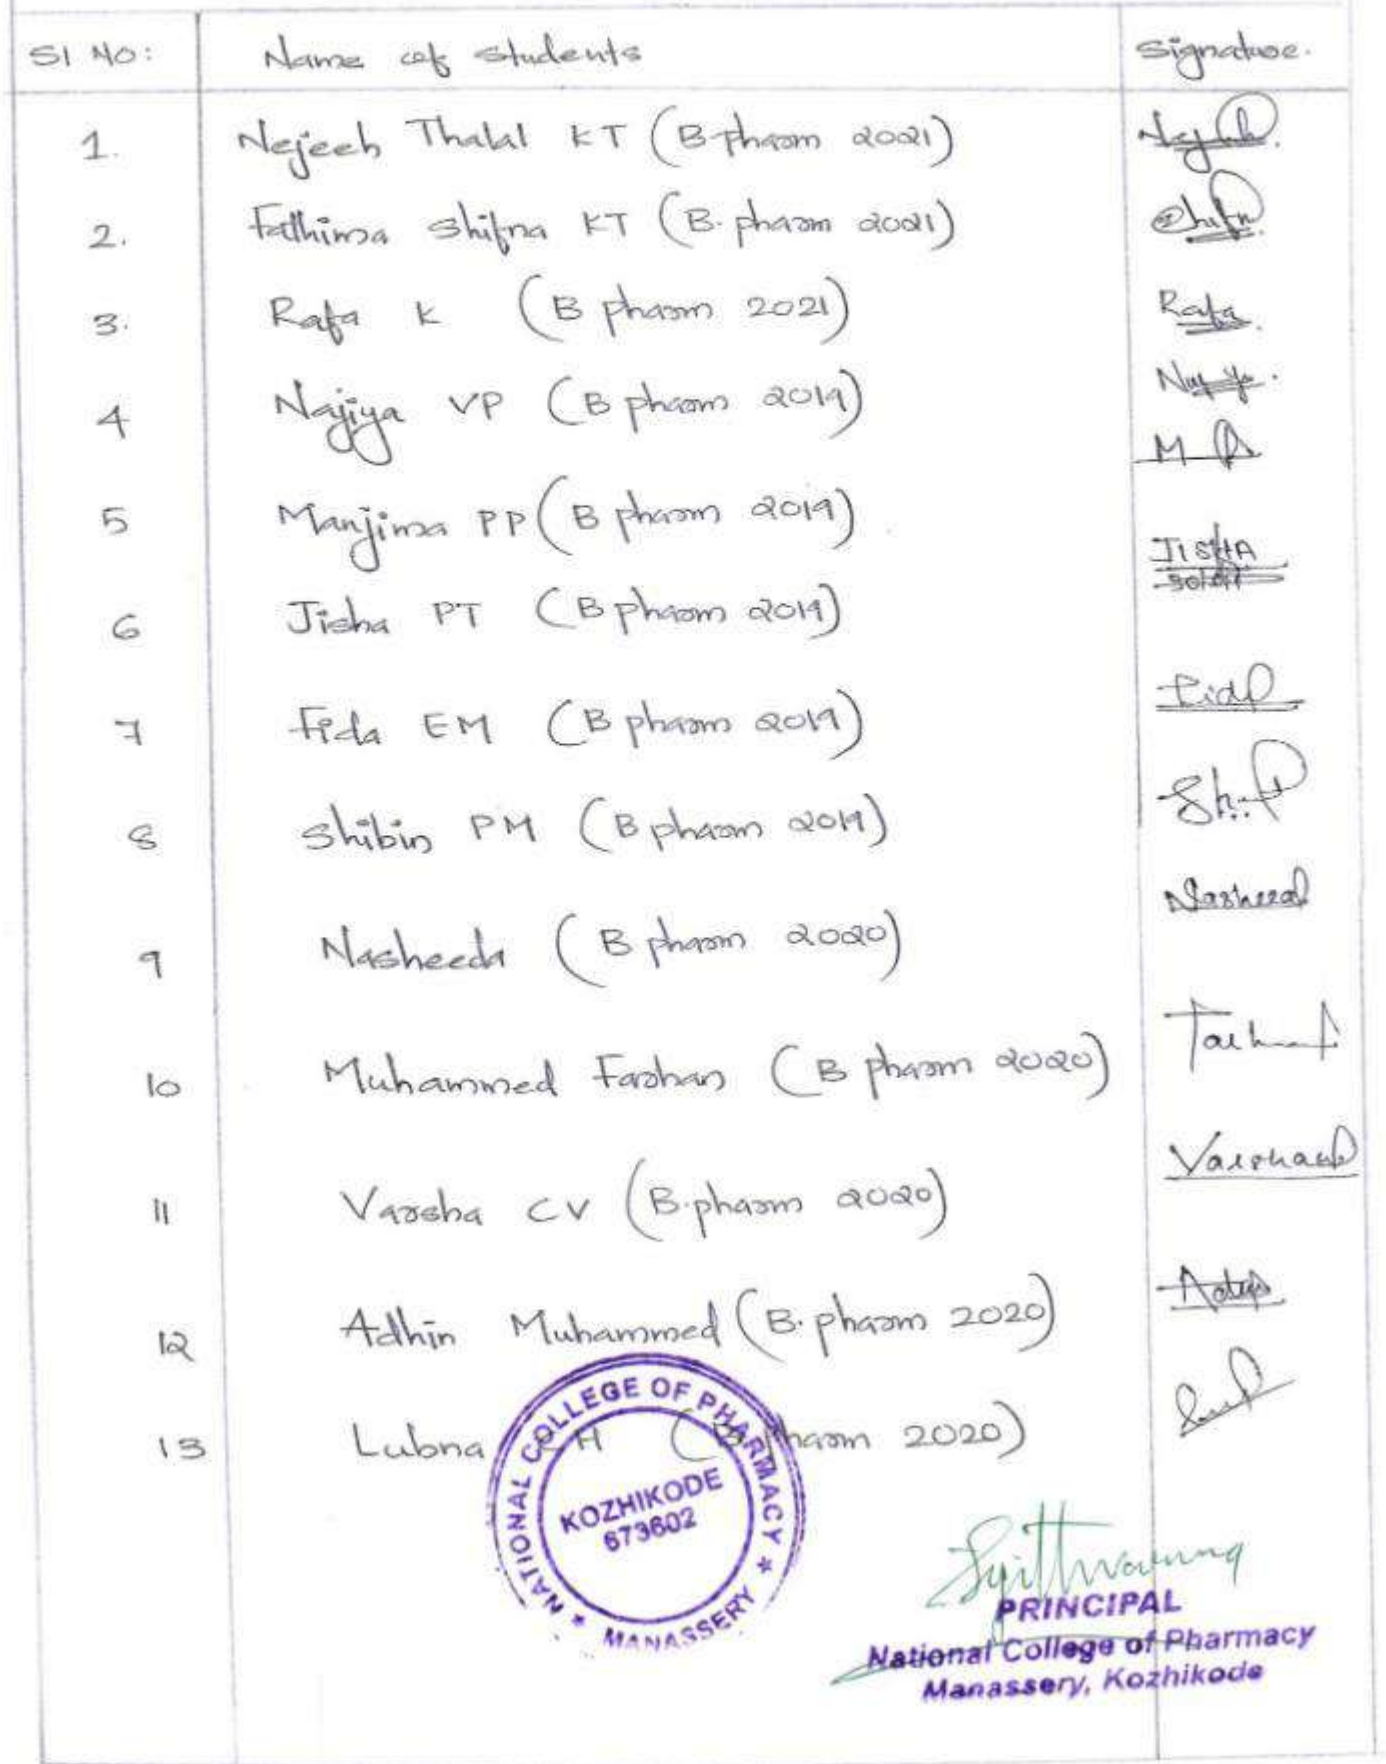 Sl No: Name of students Signature.
1. Nejeeb Thalal KT (B-pharm 2021)
2. Fathima Shifna KT (B. pharm 2021) Shifn
3. Rafa K (B pharm 2021) Rafa
4 Najiya VP (B pharm 2019)
M
5 Manjima PP (B pharm 2019)
JISHA
6 Jisha PT (B pharm 2019)
7 Fida EM (B pharm 2019) Fida
8 Shibin PM (B pharm 2019)
9 Nasheeda (B pharm 2020) Nasheeda
10 Muhammed Farhan (B pharm 2020)
11 Varsha CV (B.pharm 2020)
12 Adhin Muhammed (B. pharm 2020)
13 Lubna (B. pharm 2020)
NATIONAL COLLEGE OF PHARMACY
KOZHIKODE
673602
* MANASSERY *
PRINCIPAL
National College of Pharmacy
Manassery, Kozhikode